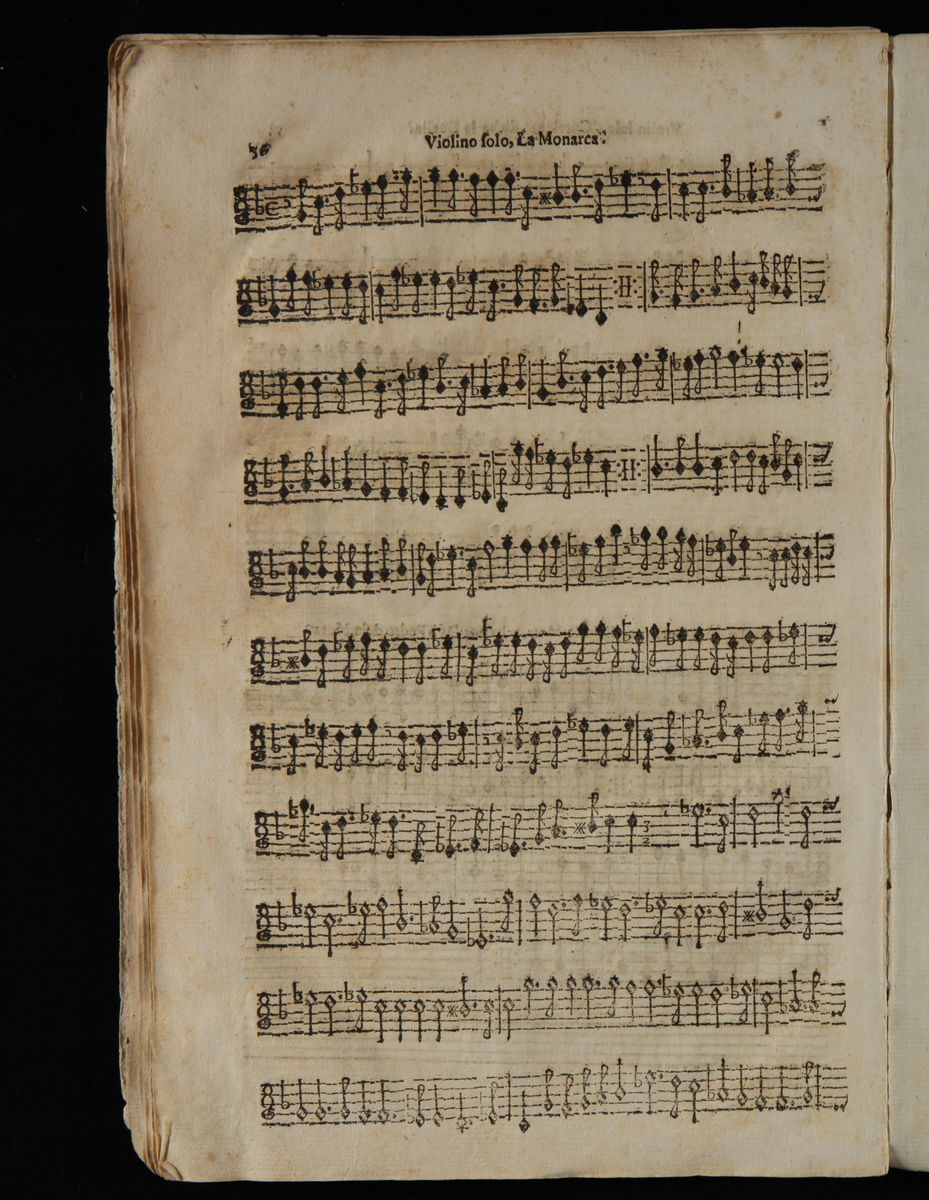 36
Violino ſolo, La Monarca.